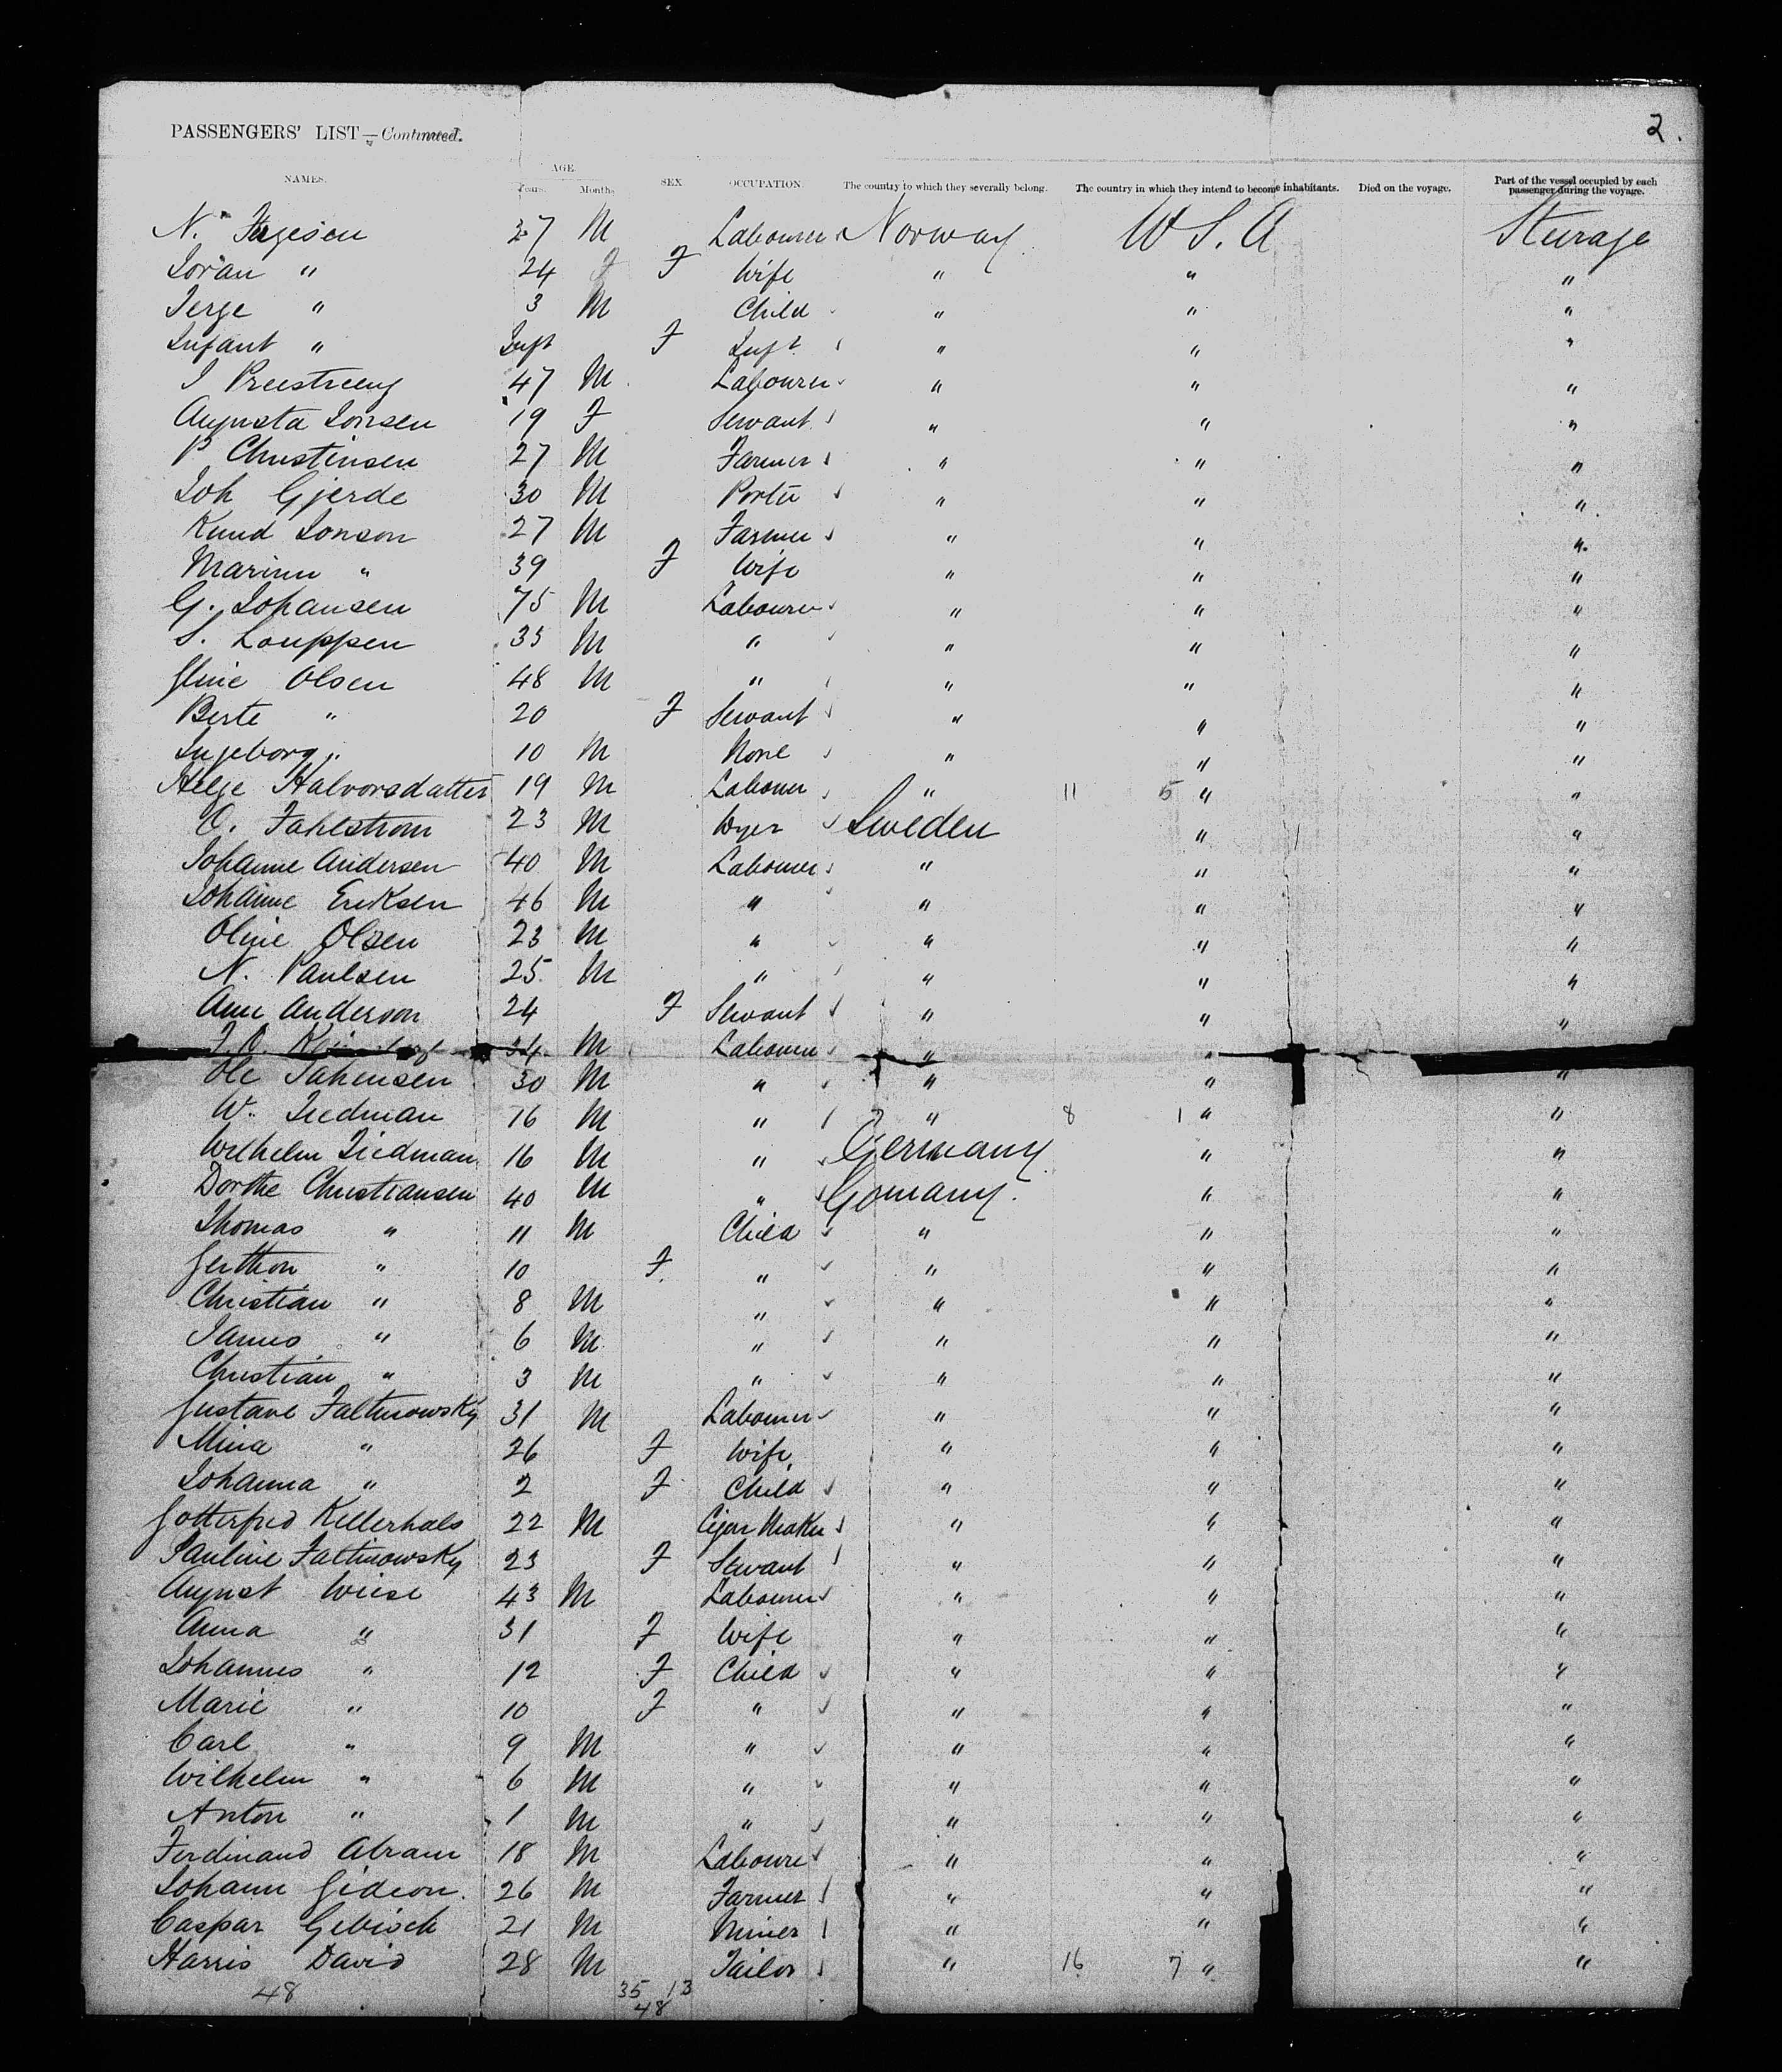 2.
PASSENGERS' LIST—Continued.
NAMES. AGE. Years. Months. SEX OCCUPATION. The country to which they severally belong. The country in which they intend to become inhabitants. Died on the voyage. Part of the vessel occupied by each passenger during the voyage.
N. 27 M Labourer Norway U.S.A Steerage
Joran " 24 F Wife " " "
Terge " 3 M Child " " "
Infant " Inft F Inft " " "
J 47 M Labourer " " "
Augusta Jonsen 19 F Servant " " "
P Christinsen 27 M Farmer " " "
Joh Gjerde 30 M Porter " " "
Knud Jonson 27 M Farmer " " "
Marinn " 39 F Wife " " "
G. Johansen 75 M Labourer " " "
S. Louppsen 35 M " " " "
Oline Olsen 48 M " " " "
Berte " 20 F Servant " " "
Ingeborg " 10 M None " " "
Helge Halvorsdatter 19 M Labourer " 11 5 " "
O. Fahlstrom 23 M Dyer Sweden " "
Johanne Andersen 40 M Labourer " " "
Johanne Eriksen 46 M " " " "
Oline Olsen 23 M " " " "
N. Paulsen 25 M " " " "
Ann Anderson 24 F Servant " " "
34 M Labourer " " "
Ole Jahensen 30 M " " " "
W. Tiedman 16 M " " 8 1 " "
Wilhelm Tiedman 16 M " Germany " "
Dorthe Christiansen 40 M " Germany. " "
Thomas " 11 M Child " " "
" 10 F " " " "
Christian " 8 M " " " "
James " 6 M " " " "
Christian " 3 M " " " "
Gustave Faltinowsky 31 M Labourer " " "
Mina " 26 F Wife " " "
Johanna " 2 F Child " " "
Gotterfried Kellerhals 22 M Cigar Maker " " "
Pauline Faltinowsky 23 F Servant " " "
August Wiese 43 M Labourer " " "
Anna " 31 F Wife " " "
Johannes " 12 F Child " " "
Marie " 10 F " " " "
Carl " 9 M " " " "
Wilhelm " 6 M " " " "
Anton " 1 M " " " "
Ferdinand Abram 18 M Labourer " " "
Johann Gideon. 26 M Farmer " " "
Caspar Gebisch 21 M Miner " " "
Harris David 28 M Tailor " 16 7 " "
48 35 13
48